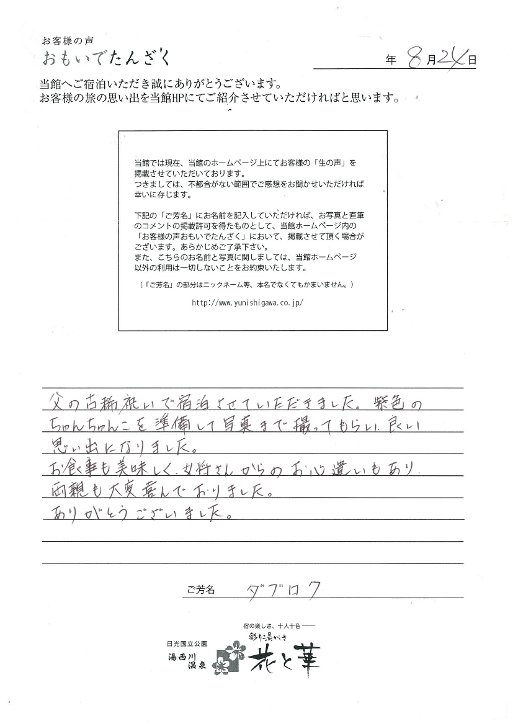 お客様の声
おもいでたんざく
年 8月24日
当館へご宿泊いただき誠にありがとうございます。
お客様の旅の思い出を当館HPにてご紹介させていただければと思います。
当館では現在、当館のホームページ上にてお客様の「生の声」を
掲載させていただいております。
つきましては、不都合がない範囲でご感想をお聞かせいただければ
幸いに存じます。
下記の「ご芳名」にお名前を記入していただければ、お写真と直筆
のコメントの掲載許可を得たものとして、当館ホームページ内の
「お客様の声おもいでたんざく」において、掲載させて頂く場合が
ございます。あらかじめご了承下さい。
また、こちらのお名前と写真に関しましては、当館ホームページ
以外の利用は一切しないことをお約束いたします。
（「ご芳名」の部分はニックネーム等、本名でなくてもかまいません。）
http://www.yunishigawa.co.jp/
父の古稀祝いで宿泊させていただきました。紫色の
ちゃんちゃんこを準備して写真まで撮ってもらい、良い
思い出になりました。
お食事も美味しく、女将さんからのお心遣いもあり
両親も大変喜んでおりました。
ありがとうございました。
ご芳名 ダブロク
宿の楽しさ、十人十色
日光国立公園
湯西川
温泉
花と華